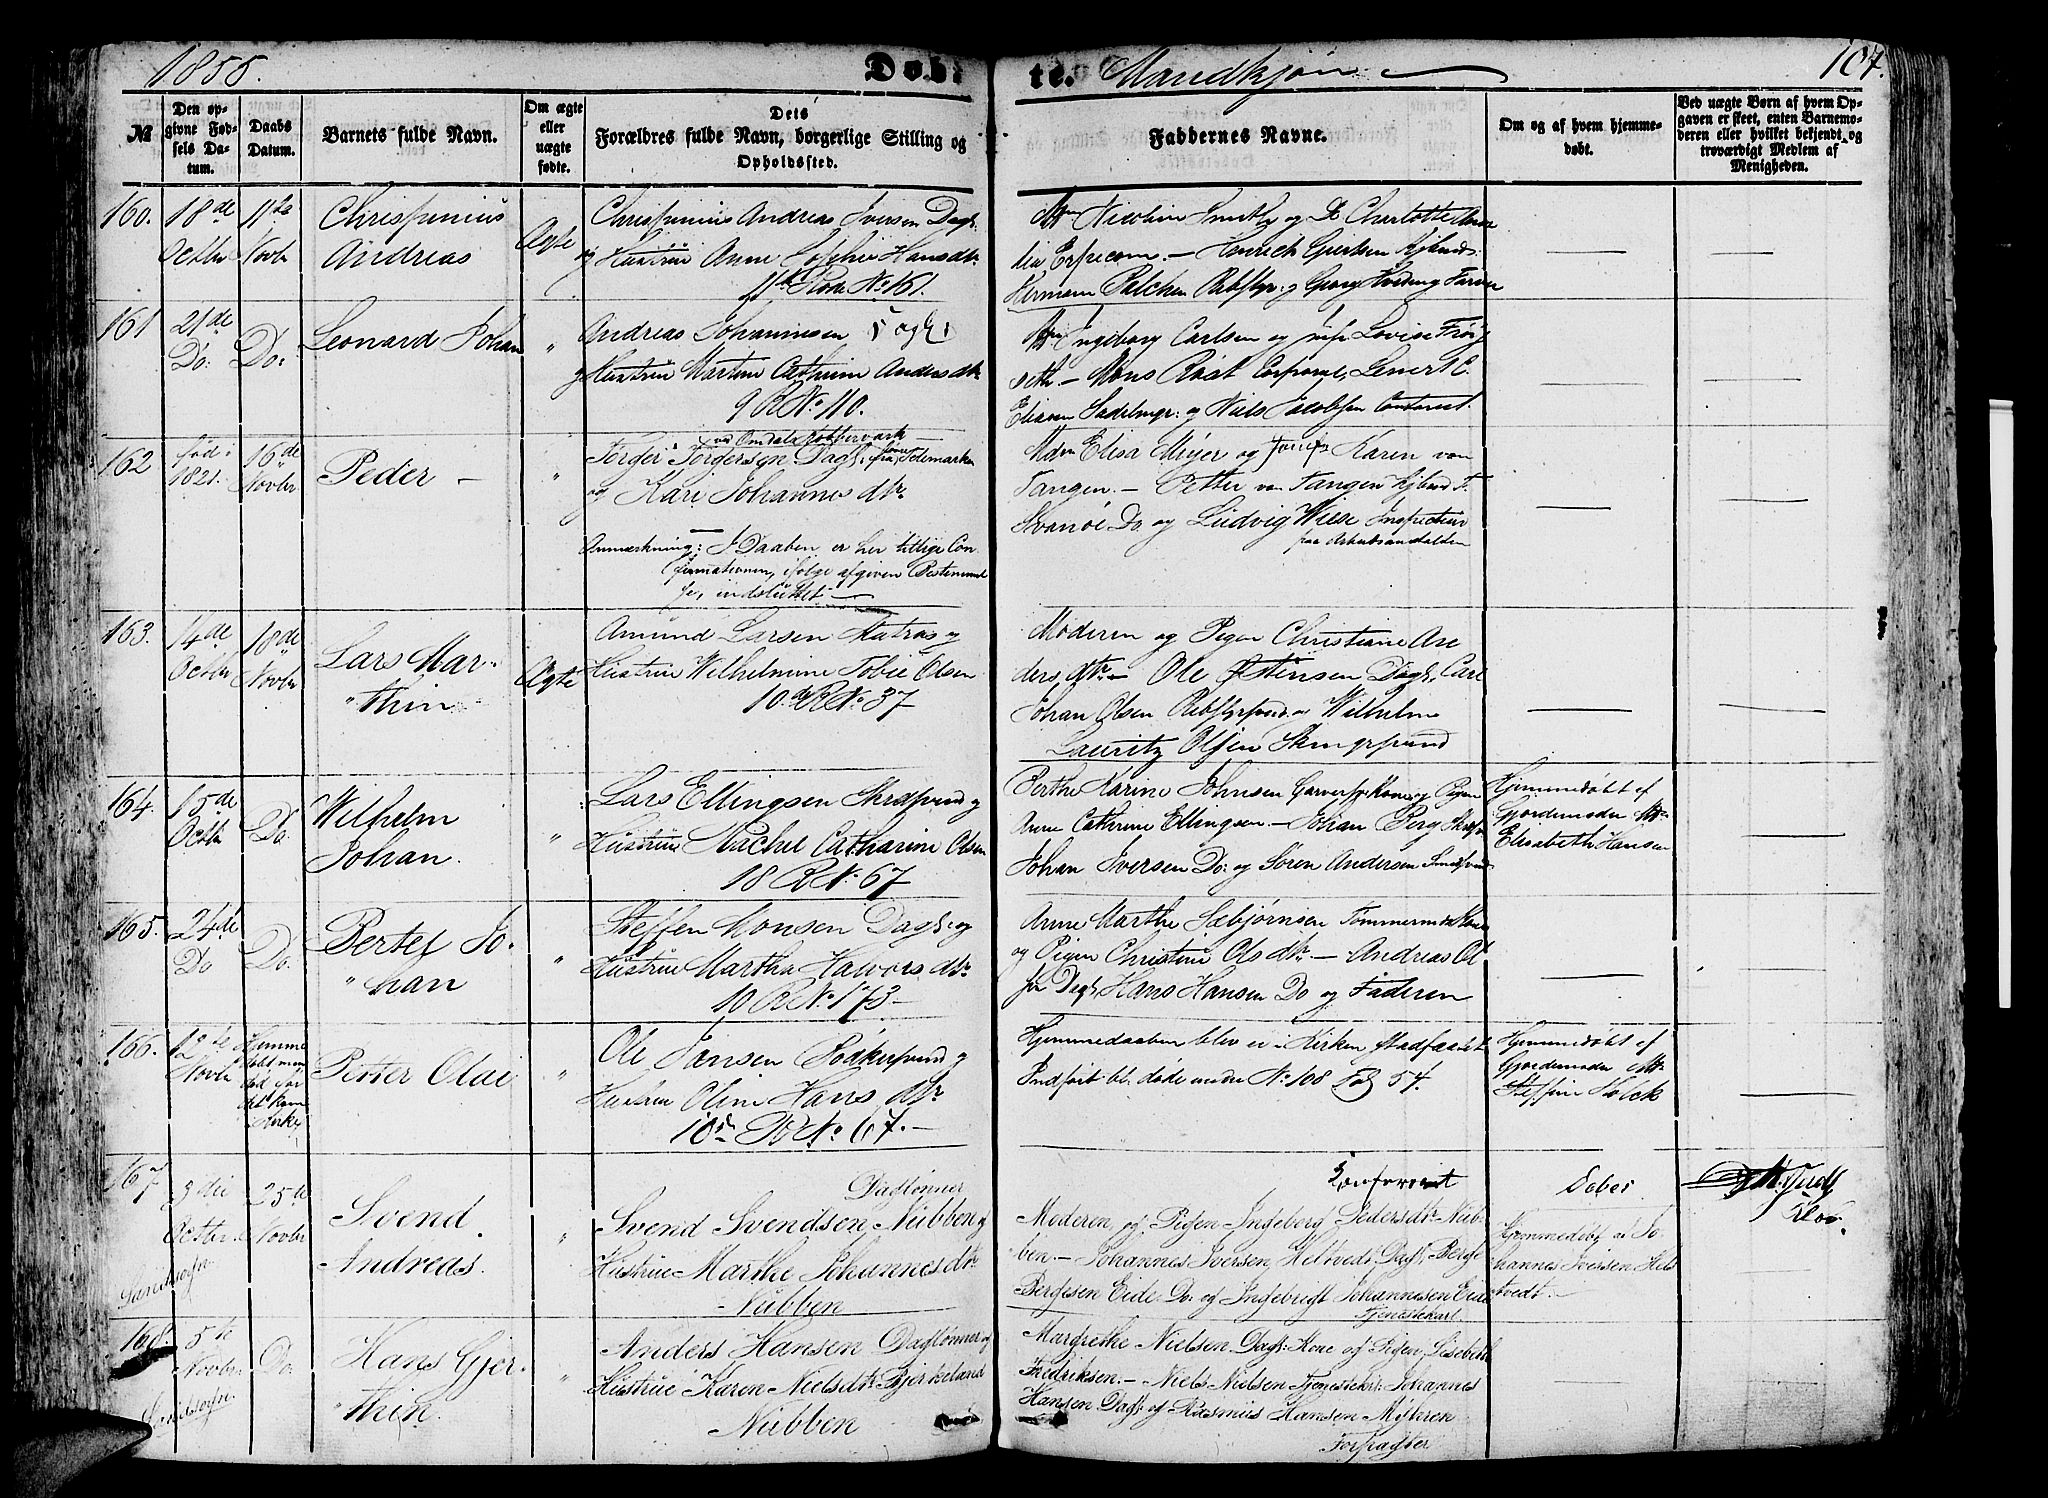 1855.
Døbte. Mandkjøn.
107.
№
Den opgivne Fødsels Datum.
Daabs Datum.
Barnets fulde Navn.
Om ægte eller uægte fødte.
Dets Forældres fulde Navn, borgerlige Stilling og Opholdssted.
Faddernes Navne.
Om og af hvem hjemmedøbt.
Ved uægte Børn af hvem Opgaven er skeet, enten Barnemoderen eller hvilket bekjendt og troværdigt Medlem af Menigheden.
160.
18de
Octbr
11te
Novbr
Chrispinius
Andreas
Ægte
Chrispinius Andreas Iversen Dagl:
og Hustrue Anne Sophie Hansdtr
11te Rode No 161.
Mdm Nicoline Smith og Do Charlotte
Henrich Giertsen Kjbmd
Herman
161
21de
Do:
Do:
Leonard Johan
"
Andreas Johannesen,
og Hustrue Martine Cathrine Andersdtr
9 R No 110.
Mdm Ingeborg Carlsen og Lovise
seth — Mons Corporal,
Eliasen og Niels Jacobsen Contorist.
162
fød i
1821.
16de
Novbr
Peder —
"
Torger Torgersen Dagl: fra Telemarken
og Kari Johannesdtr
Anmærkning: I Daaben er her tillige Con-
firmationen, ifølge afgiven Bestemmel-
se, indsluttet —
Mdm Elisa Meyer og Jomf Karen von
Tangen. — Petter von Tangen Kjbmd F.
Svanøe Do, og Ludvig Wiese Inspecteur
163.
14de
Octbr
18de
Novbr
Lars Mar-
"thin
Ægte
Amund Larsen Matros og
Hustrue Wilhelmine Tobie Olsen
10de R No 37
Moderen og Pigen Christiane An-
dersdtr — Ole Østensen Dagl, Carl
Johan Olsen og Wilhelm
Lauritz Olsen
164.
15de
Octbr
Do.
Wilhelm
Johan.
"
Lars Ellingsen og
Hustrue Rachel Catharine Olsen
18 R No 67
Berthe Karine Johnsen Kone og Pigen
Anne Cathrine Ellingsen — Johan Berg
Johan Iversen Do: og Søren Andersen
Hjemmedøbt af
Gjordemoder Md
Elisabeth Hansen
165.
24de
Do
Do.
Bertel Jo-
"han
"
Steffen Monsen Dagl: og
Hustrue Martha Halvorsdtr
10 R No 173 —
Anne Marthe Sebjørnsen Kone
og Pigen Christine Olsdtr — Andreas Ol-
sen Dagl, Hans Hansen Do og Faderen
166.
12te
Novbr
Hjemme
døbt men
død før
det kom
i Kirke
Petter Olai
"
Ole Jansen og
Hustrue Oline Hansdtr
10de R No 67. —
Hjemmedaaben blev ei i Kirken stadfæstet
Indført bl. døde under No 108 Fol 54.
Hjemmedøbt af
Gjordemoder Md
Holck
167
3die
Octbr.
25de
Novbr
Sandsogn
Svend
Andreas.
"
Daglønner
Svend Svendsen Nubben og
Hustrue Marthe Johannesdtr
Nubben
Moderen, og Pigen Ingeborg Pedersdtr Nub-
ben. — Johannes Iversen Heltvedt Dagl, Berge
Bergesen Eide Do. og Ingebrigt Johannesen Eide
Tjenestekarl
Hjemmedøbt af Jo-
hannes Iversen Helt
tvedt. —
168.
5te
Novbr
Do.
Sandsogn.
Hans Gjer-
"thin.
"
Anders Hansen Daglønner og
Hustrue Karen Nielsdtr Bjerkeland
Nubben
Margrethe Nielsen Dagl: Kone og Pigen Lisebeth
Fredriksen. — Niels Nielsen Tjenestekl: Johannes
Hansen Dagl og Rasmus Hansen Myhren
Forpagter